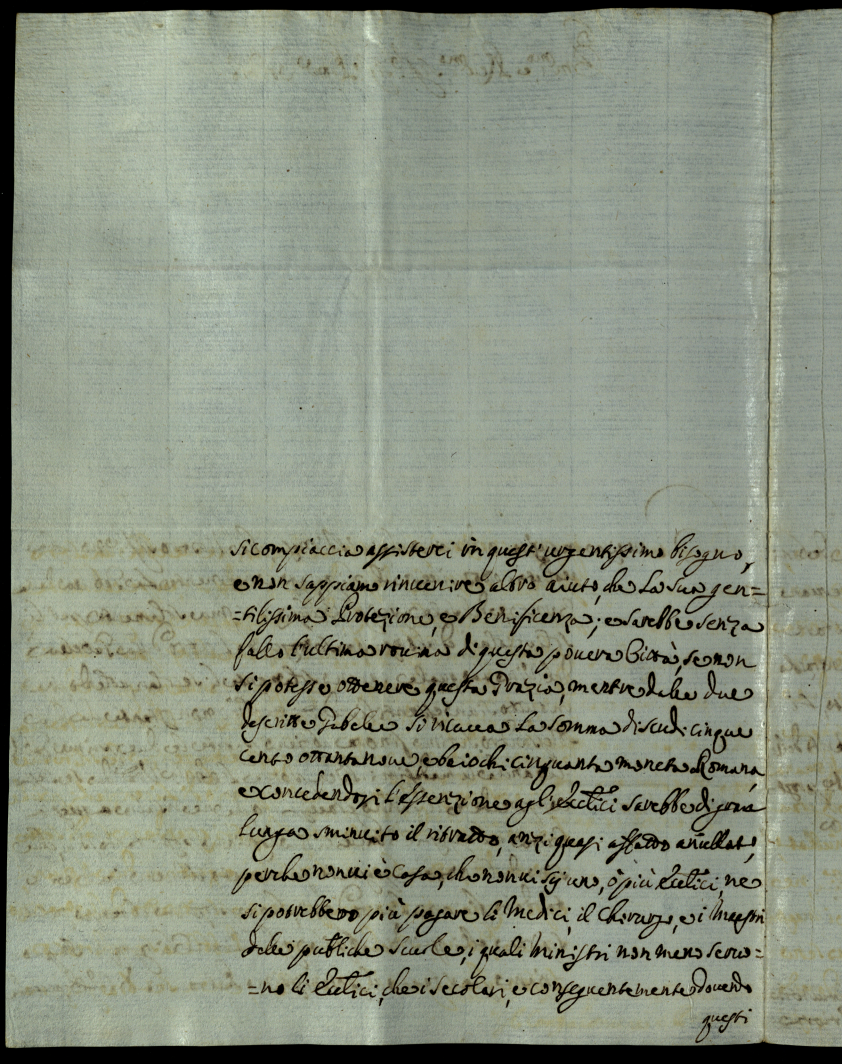 si compiaccia assisterci in quest'urgentissimo bisogno,
e non sappiamo rinvenire altro aiuto, che La Sua gen=
=tilissima Protezione, e Beneficenza; e sarebbe senza
fallo l'ultima rovina di questa povera Città, se non
si potesse ottenere questa Grazia, mentre dalle due
descritte Gabelle si ricava La Somma di scudi cinque
cento ottanta nove, e baiochi cinquanta moneta Romana,
e concedendosi l'essenzione agl'Eccl.ci sarebbe di gran
lunga sminuito il ritratto, anzi quasi affatto anullato,
perche non vi è Casa, che non vi sij uno, ò più Eccl.ci, ne
si potrebbero più pagare li Medici, il Chirurgo, e i Maestri
delle publiche Scuole, i quali Ministri non meno servo=
=no li Eccl.ci, che i secolari, e conseguentemente dovendo
questi